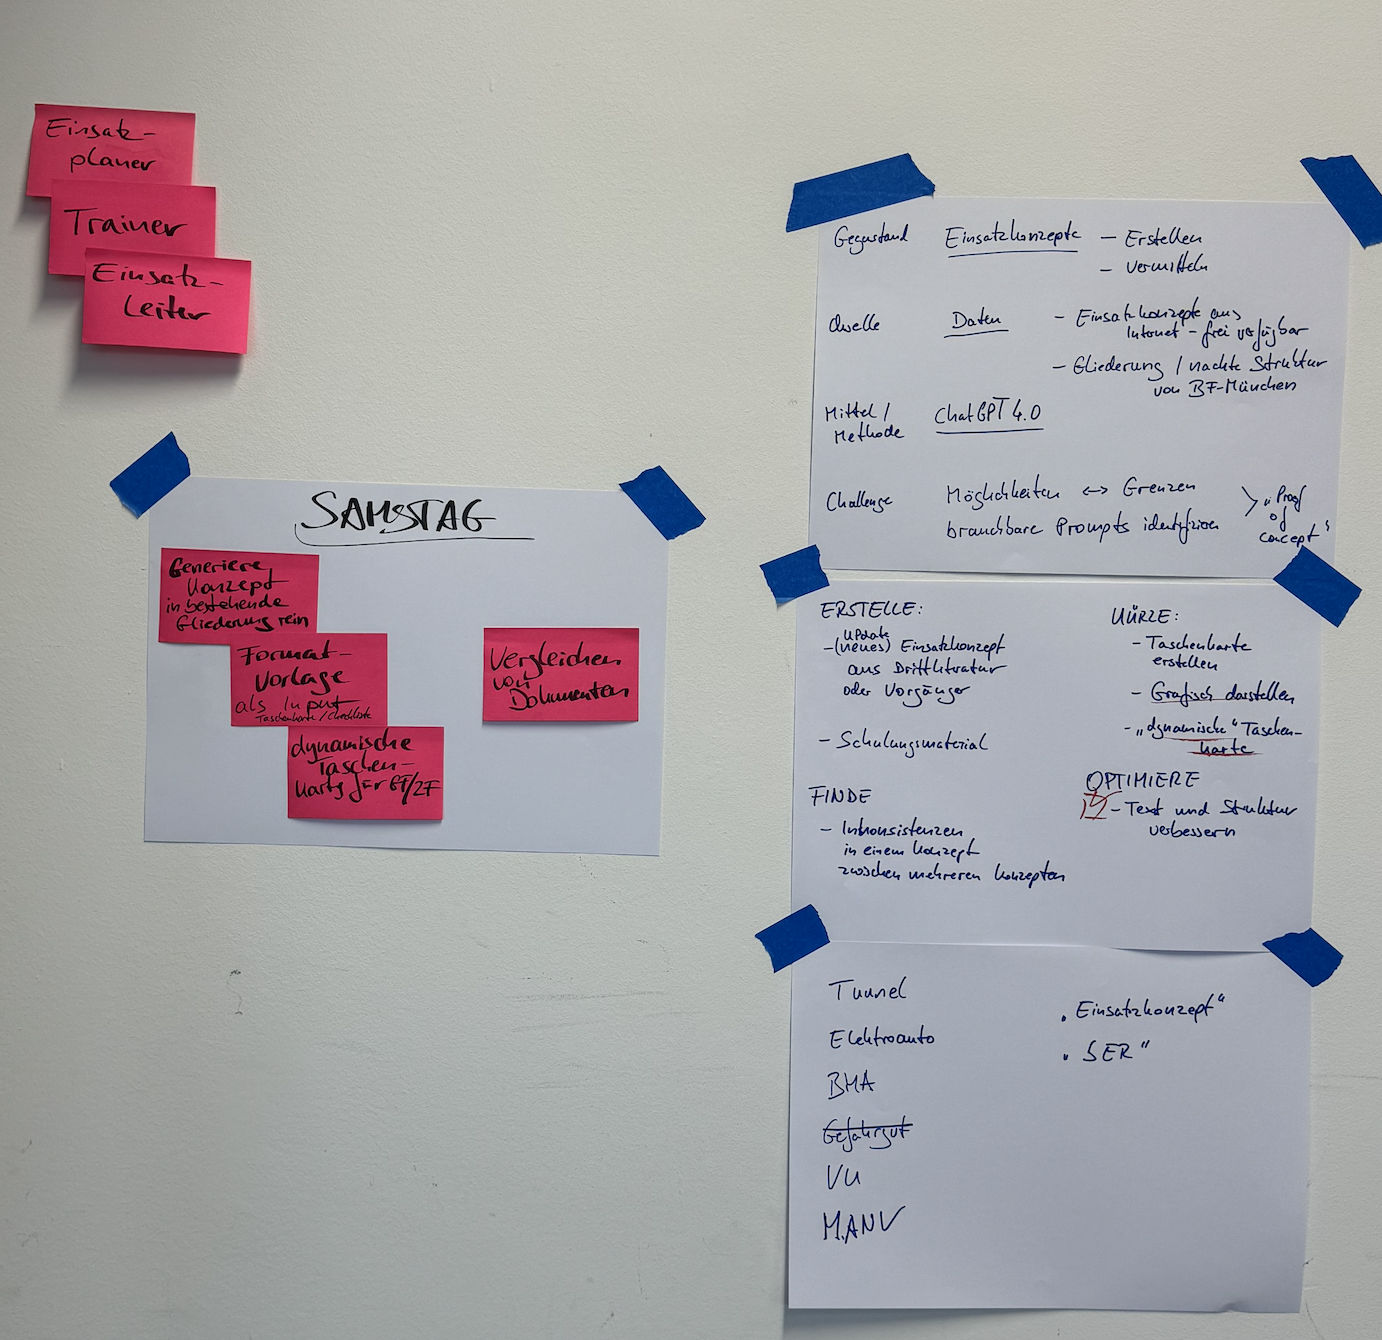 Einsatz-
planer
Trainer
Einsatz-
Leiter
SAMSTAG
Generiere
Konzept
in bestehende
Gliederung rein
Format-
Vorlage
als Input
Taschenkarte/Checkliste
dynamische
Taschen-
karte für GF/ZF
Vergleichen
von
Dokumenten
Gegenstand Einsatzkonzepte – Erstellen
– Vermitteln
Quelle Daten – Einsatzkonzepte aus
Internet – frei verfügbar
– Gliederung / nackte Struktur
von BF-München
Mittel /
Methode ChatGPT 4.0
Challenge Möglichkeiten <-> Grenzen
brauchbare Prompts identifizieren
> „Proof
of
concept"
ERSTELLE:
Update
– (neues) Einsatzkonzept
aus Drittliteratur
oder Vorgänger
– Schulungsmaterial
FINDE
– Inkonsistenzen
in einem Konzept
zwischen mehreren Konzepten
KÜRZE:
– Taschenkarte
erstellen
– Grafisch darstellen
– „dynamische" Taschen-
karte
OPTIMIERE
– Text und Struktur
verbessern
Tunnel
Elektroauto
BMA
Gefahrgut
VU
MANV
„Einsatzkonzept"
„SER"